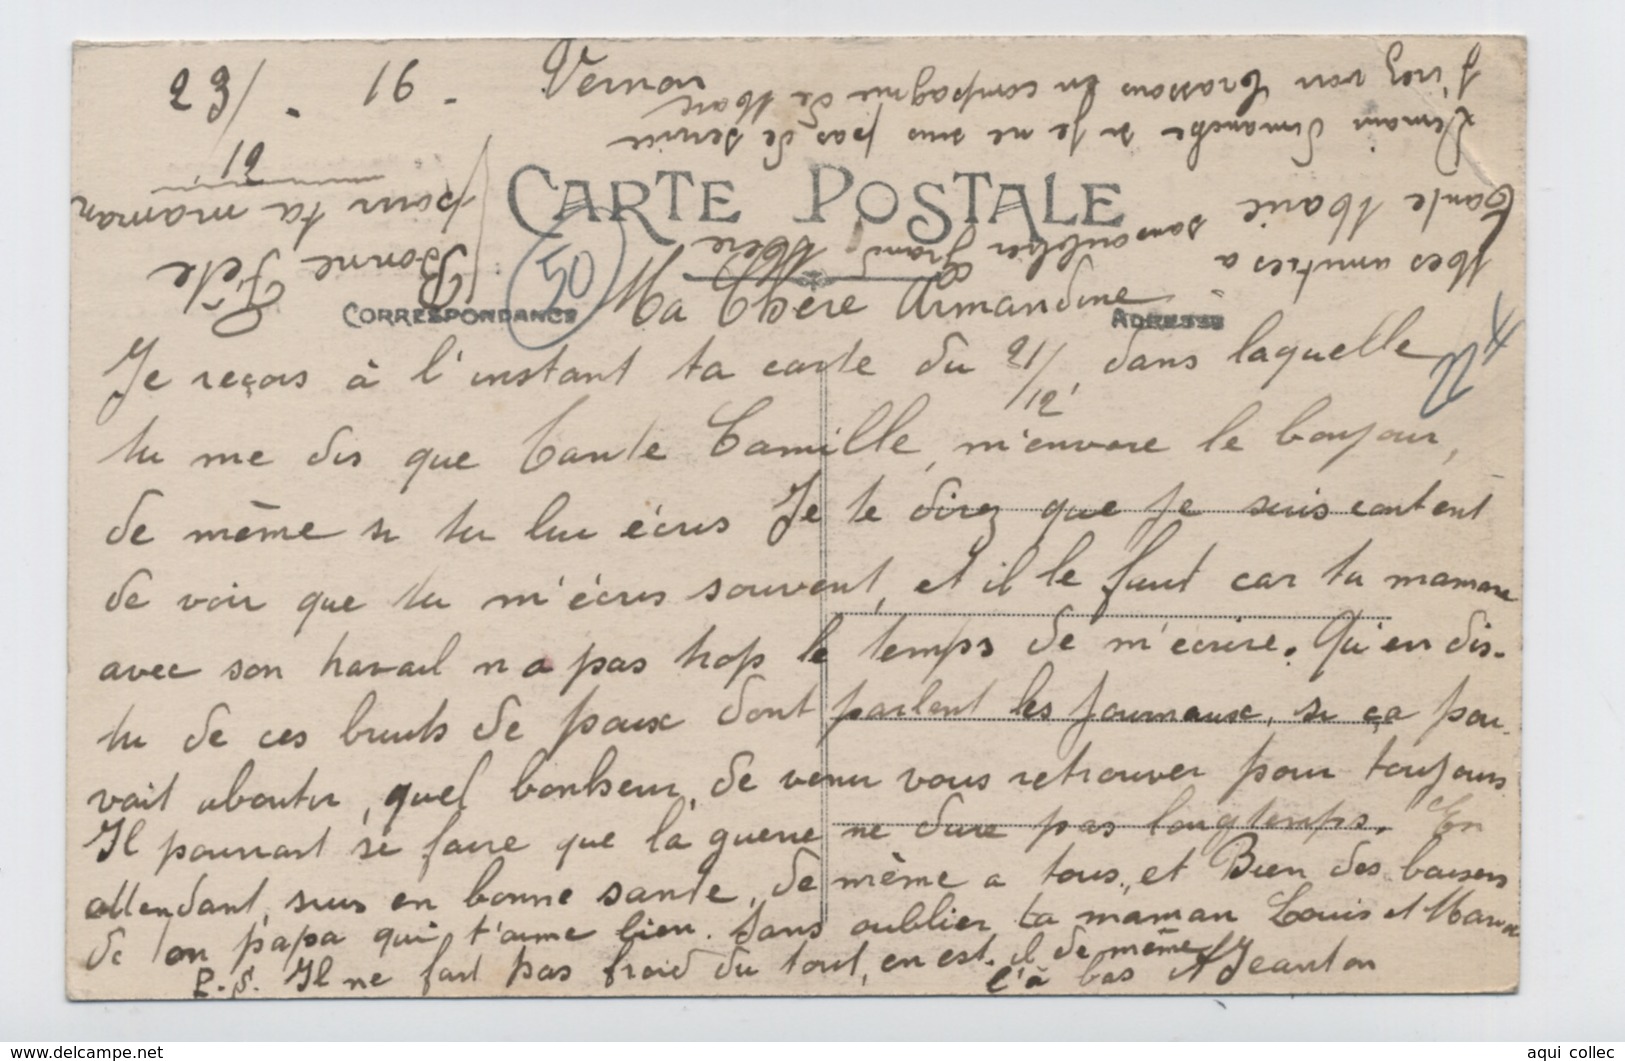 23/12 - 16 - Vernon
CARTE POSTALE
CORRESPONDANCE
ADRESSE
50
Ma Chère Armandine
Je reçois à l'instant ta carte du 21/12, dans laquelle
tu me dis que Tante Camille, m'envoie le bonjour,
de même si tu lui écris Je te direz que je suis content
de voir que tu m'écris souvent, et il le faut car ta maman
avec son travail n a pas trop le temps de m'écrire. Qu'en dis-
tu de ces bruits de paix dont parlent les journaux, si ça pou-
vait aboutir, quel bonheur, de venir vous retrouver pour toujours
Il pourrait se faire que la guerre ne dure pas longtemps. En
attendant, suis en bonne santé, de même a tous, et Bien des baisers
de ton papa qui t'aime bien. Sans oublier ta maman Louis et
et Jeanton
P.S. Il ne fait pas froid du tout, en est-il de même
l'à bas
Mes amitiés a
Tante Marie
sans oublier Grand Mère
Demain dimanche si je ne suis pas de service
j'irez voir Brassons en compagnie de
Bonne Fête
pour ta maman
aqui collec